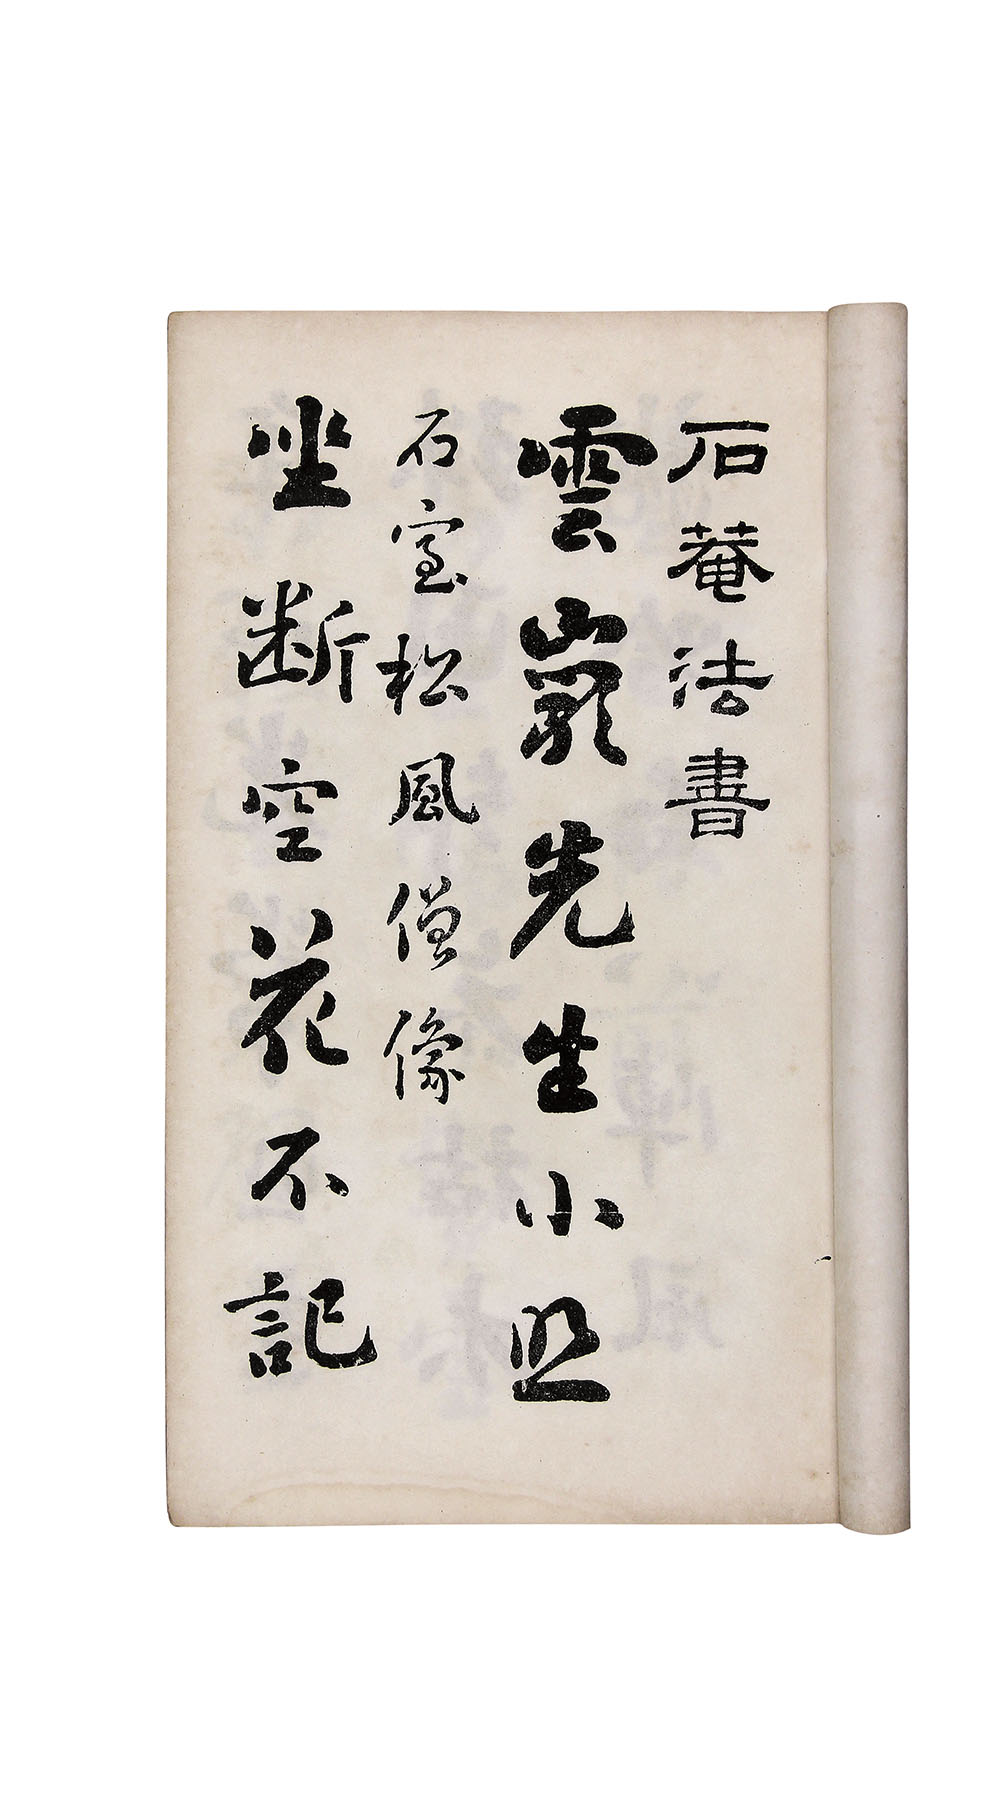 石菴法書
雲巖先生小照
石室松風僧像
坐断空花不記